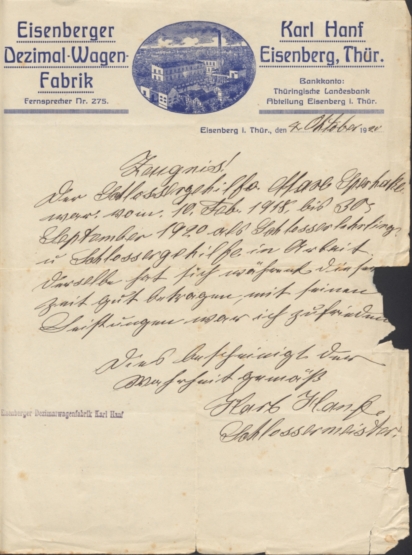 Eisenberger
Dezimal-Wagen-
Fabrik
Fernsprecher Nr. 275.
Karl Hanf
Eisenberg, Thür.
Bankkonto:
Thüringische Landesbank
Abteilung Eisenberg i. Thür.
Eisenberg i. Thür., den 2. Oktober 1920
Zeugnis!
Der Schlossergehilfe
war vom 10. Feb. 1918 bis 30.
September 1920 als Schlosserlehrling
u Schlossergehilfe in Arbeit
derselbe hat sich während dieser
Zeit gut betragen mit seinen
Leistungen war ich zufrieden
Dies bescheinigt der
Wahrheit gemäß
Karl Hanf.
Schlossermeister.
Eisenberger Dezimalwagenfabrik Karl Hanf